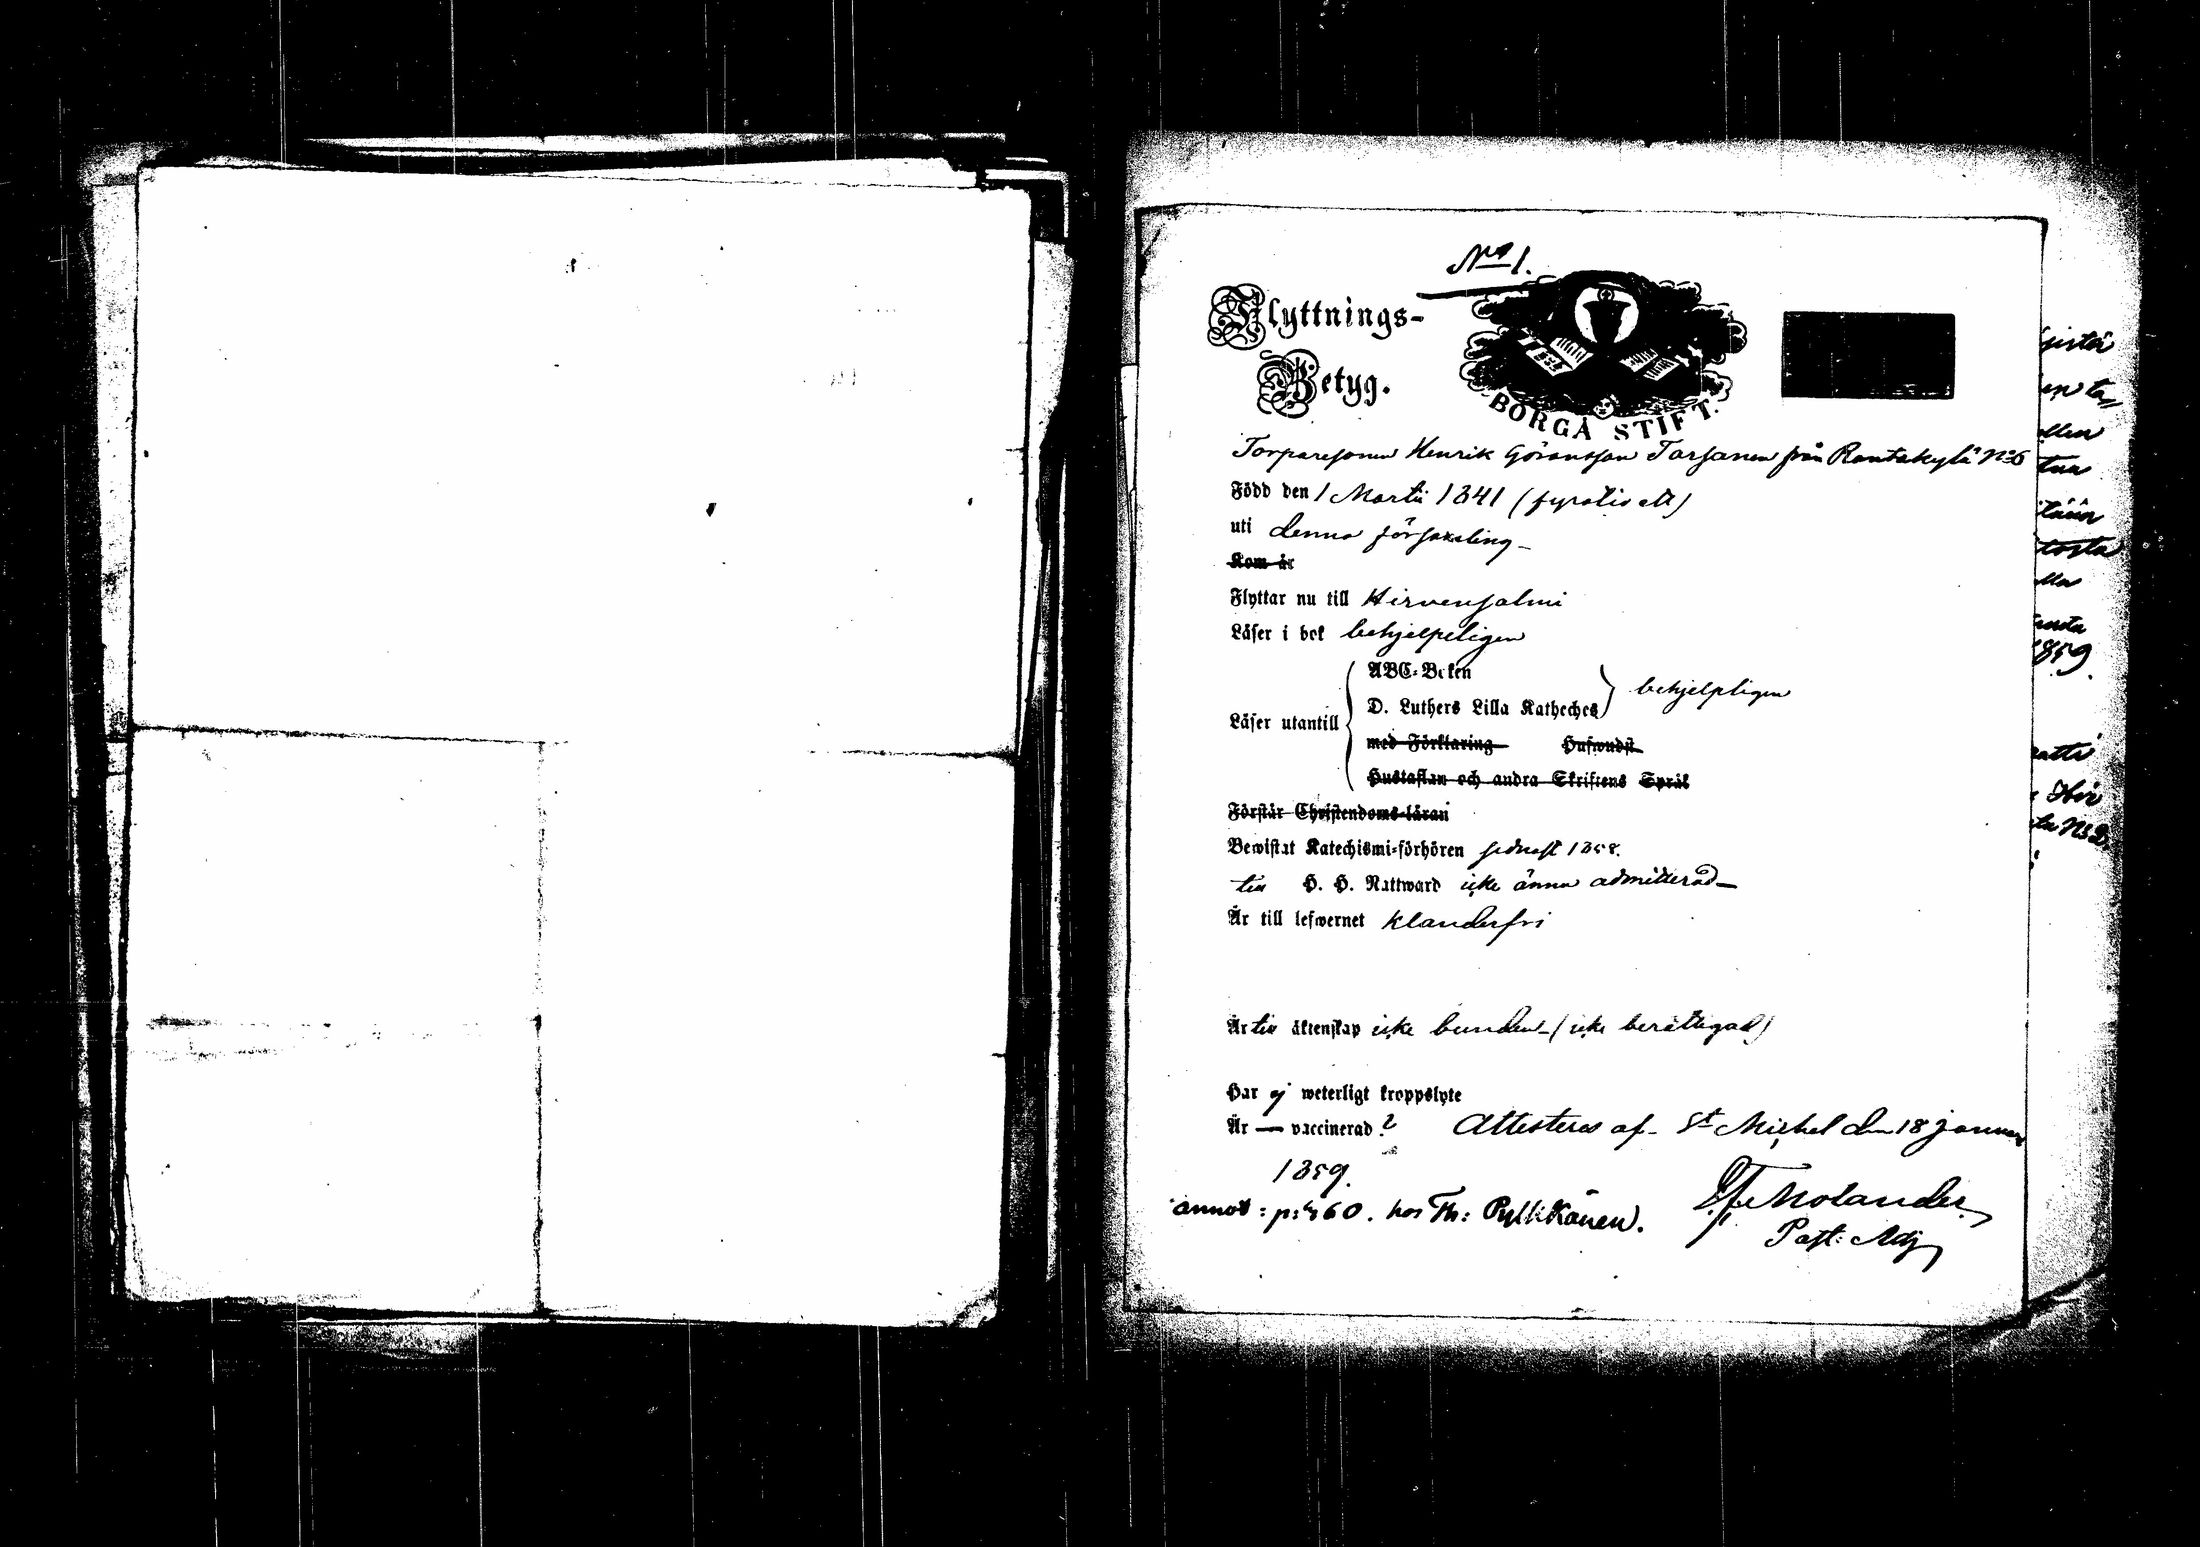 No 1.
Flyttnings-
Betyg.
BORGÅ STIFT.
Torparesonen Henrik Göransson Tarjanen från Rantakylä No 6
Född den 1 Martii 1841 (fyratio ett)
uti denna församling
Kom år
Flyttar nu till Hirvensalmi
Läser i bok behjelpeligen
ABC-Boken
D. Luthers Lilla Katheches behjelpligen
Läser utantill
med Förklaring Huswudst.
Hustaflan och andra Skriftens Språk
Förstår Christendoms-läran
Bewistat Katechismi-förhören sednast 1858.
till H. H. Nattward icke ännu admitterad
Är till lefwernet klanderfri
Är till äktenskap icke bunden (icke berättigad)
Har ej weterligt kroppslyte
Är — vaccinerad? Attesteras af St Michel den 18 januari
1859.
Molander
annot: pag 460. hos Th: Pyllikänen.
Past: Adj
1859